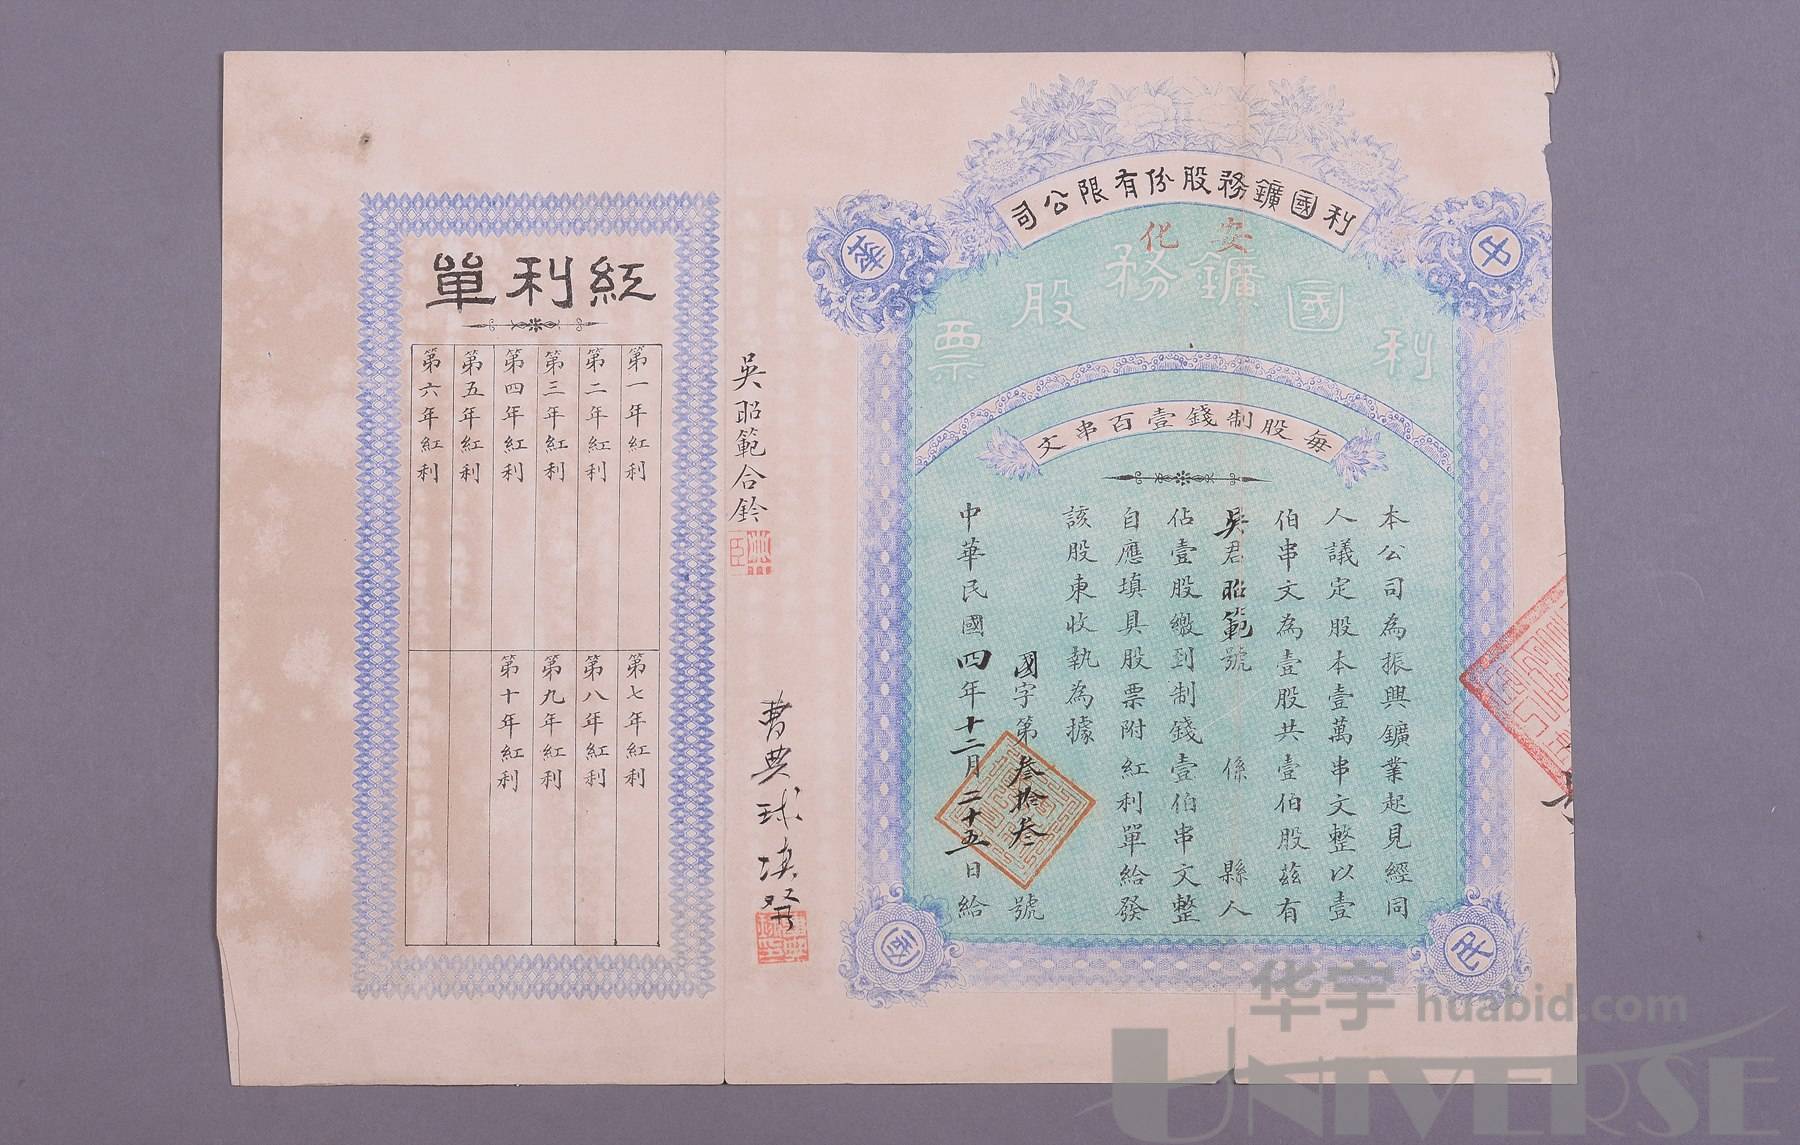 利國鑛務股份有限公司
安化
利國鑛務股票
中華民國
每股制錢壹百串文
本公司為振興鑛業起見經同
人議定股本壹萬串文整以壹
伯串文為壹股共壹伯股茲有
吳君昭範號 係 縣人
佔壹股繳到制錢壹伯串文整
自應填具股票附紅利單給發
該股東收執為據
國字第叁拾叁號
中華民國四年十二月二十五日給
吳昭範合鈐
曹典球填發
紅利單
第一年紅利
第二年紅利
第三年紅利
第四年紅利
第五年紅利
第六年紅利
第七年紅利
第八年紅利
第九年紅利
第十年紅利
华宇 huabid.com
UNIVERSE